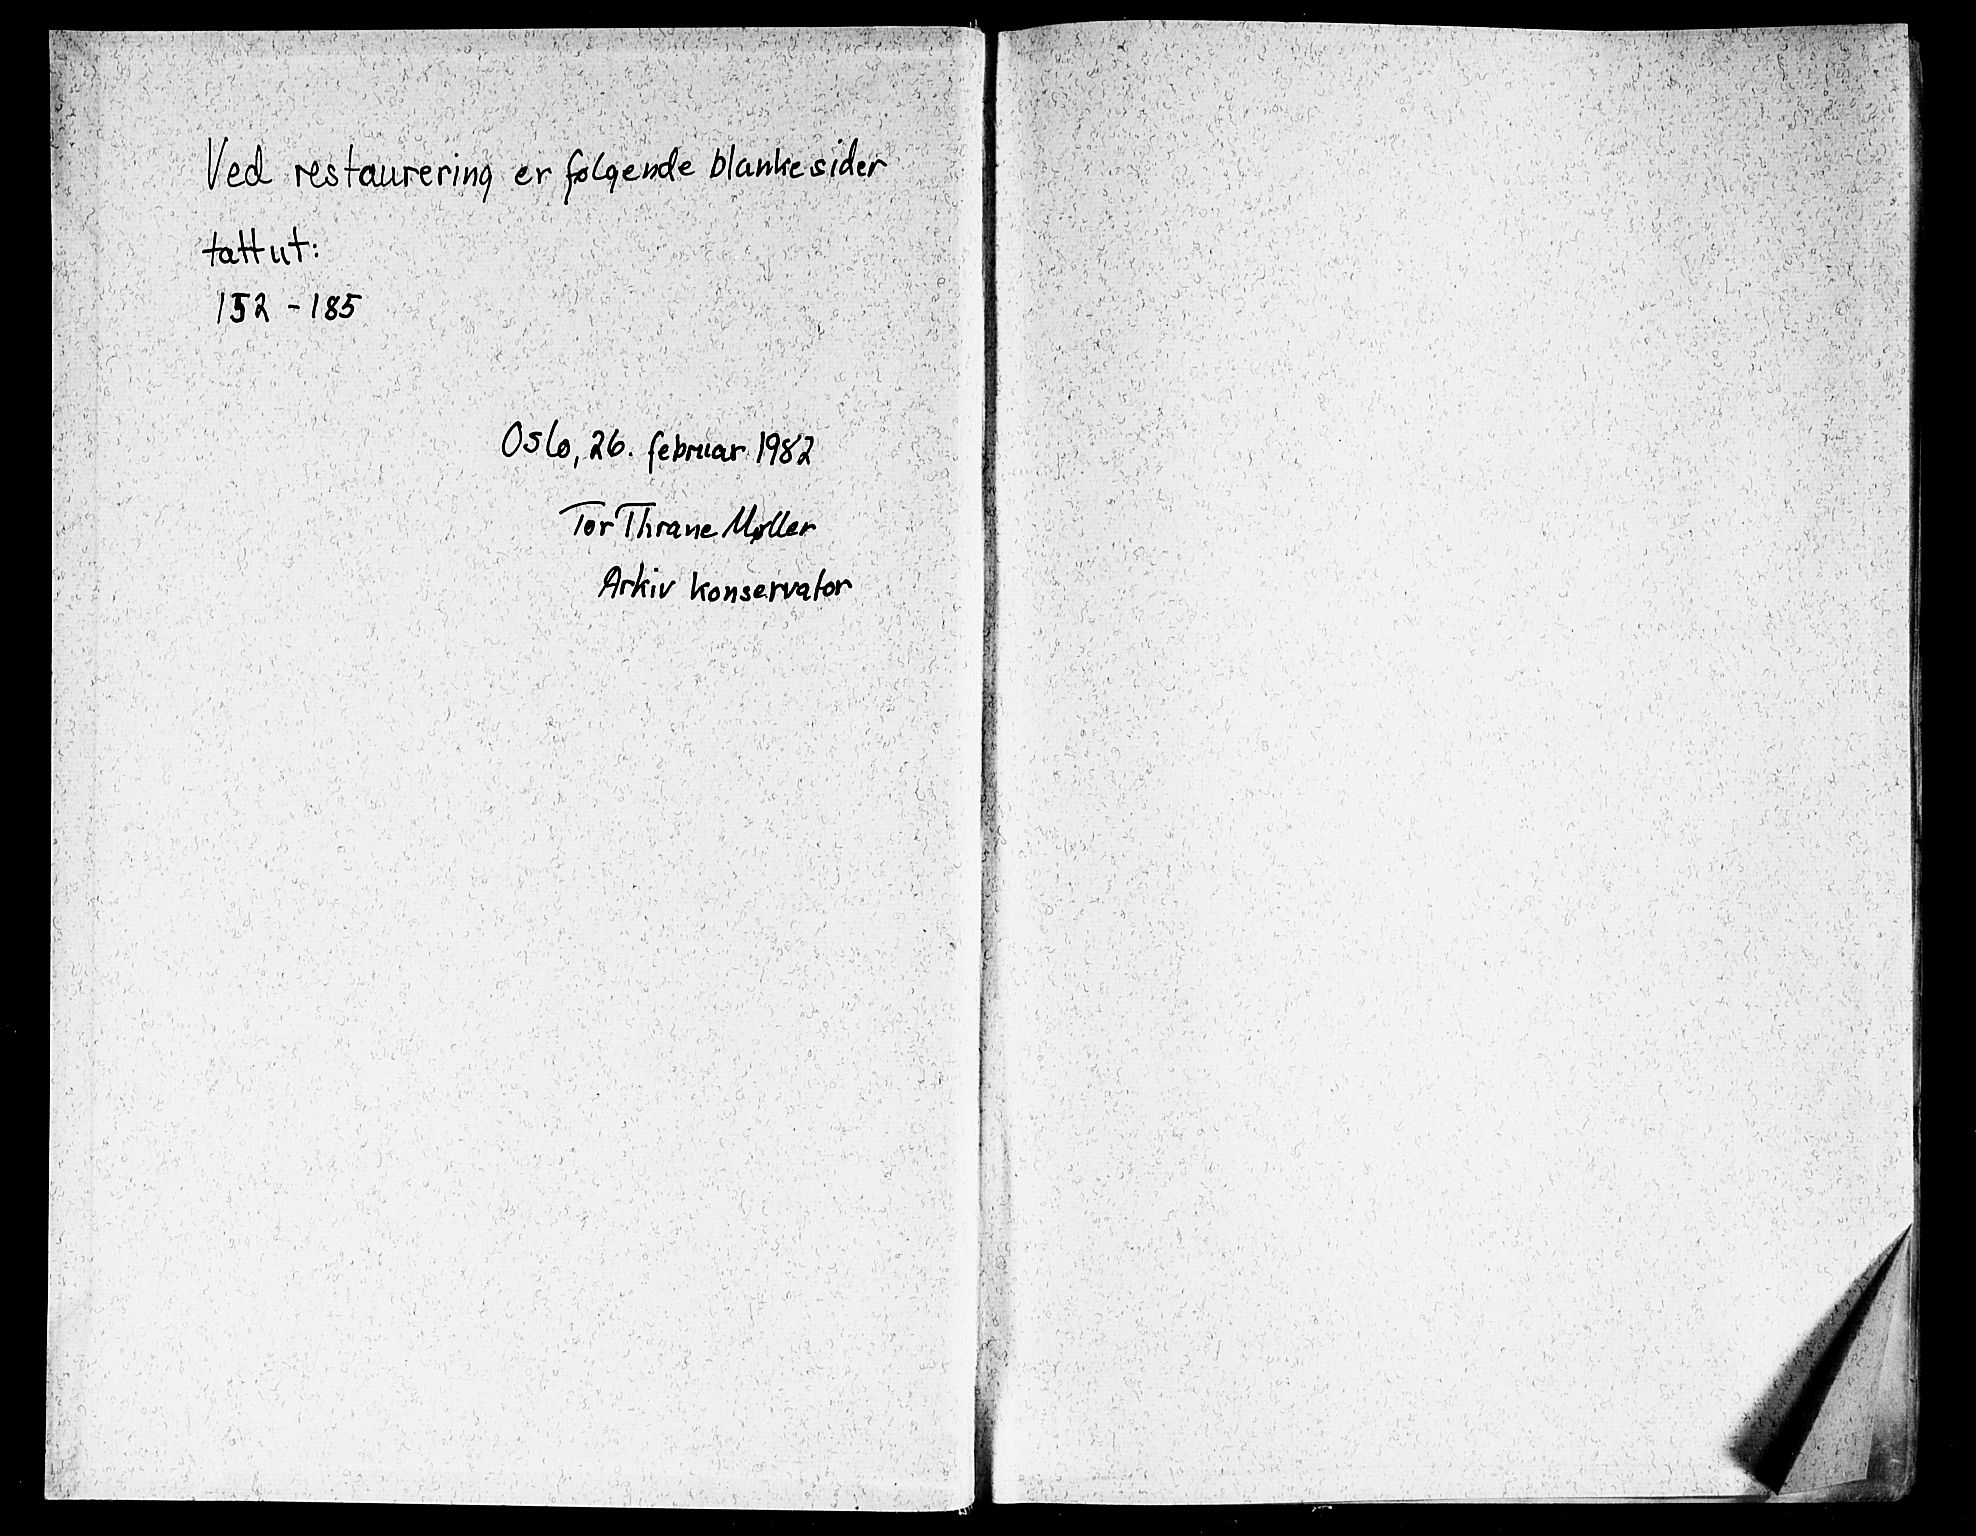 Ved restaurering er følgende blanke sider
tatt ut:
152 - 185
Oslo, 26. februar 1982
Tor Thrane Møller
Arkiv konservator